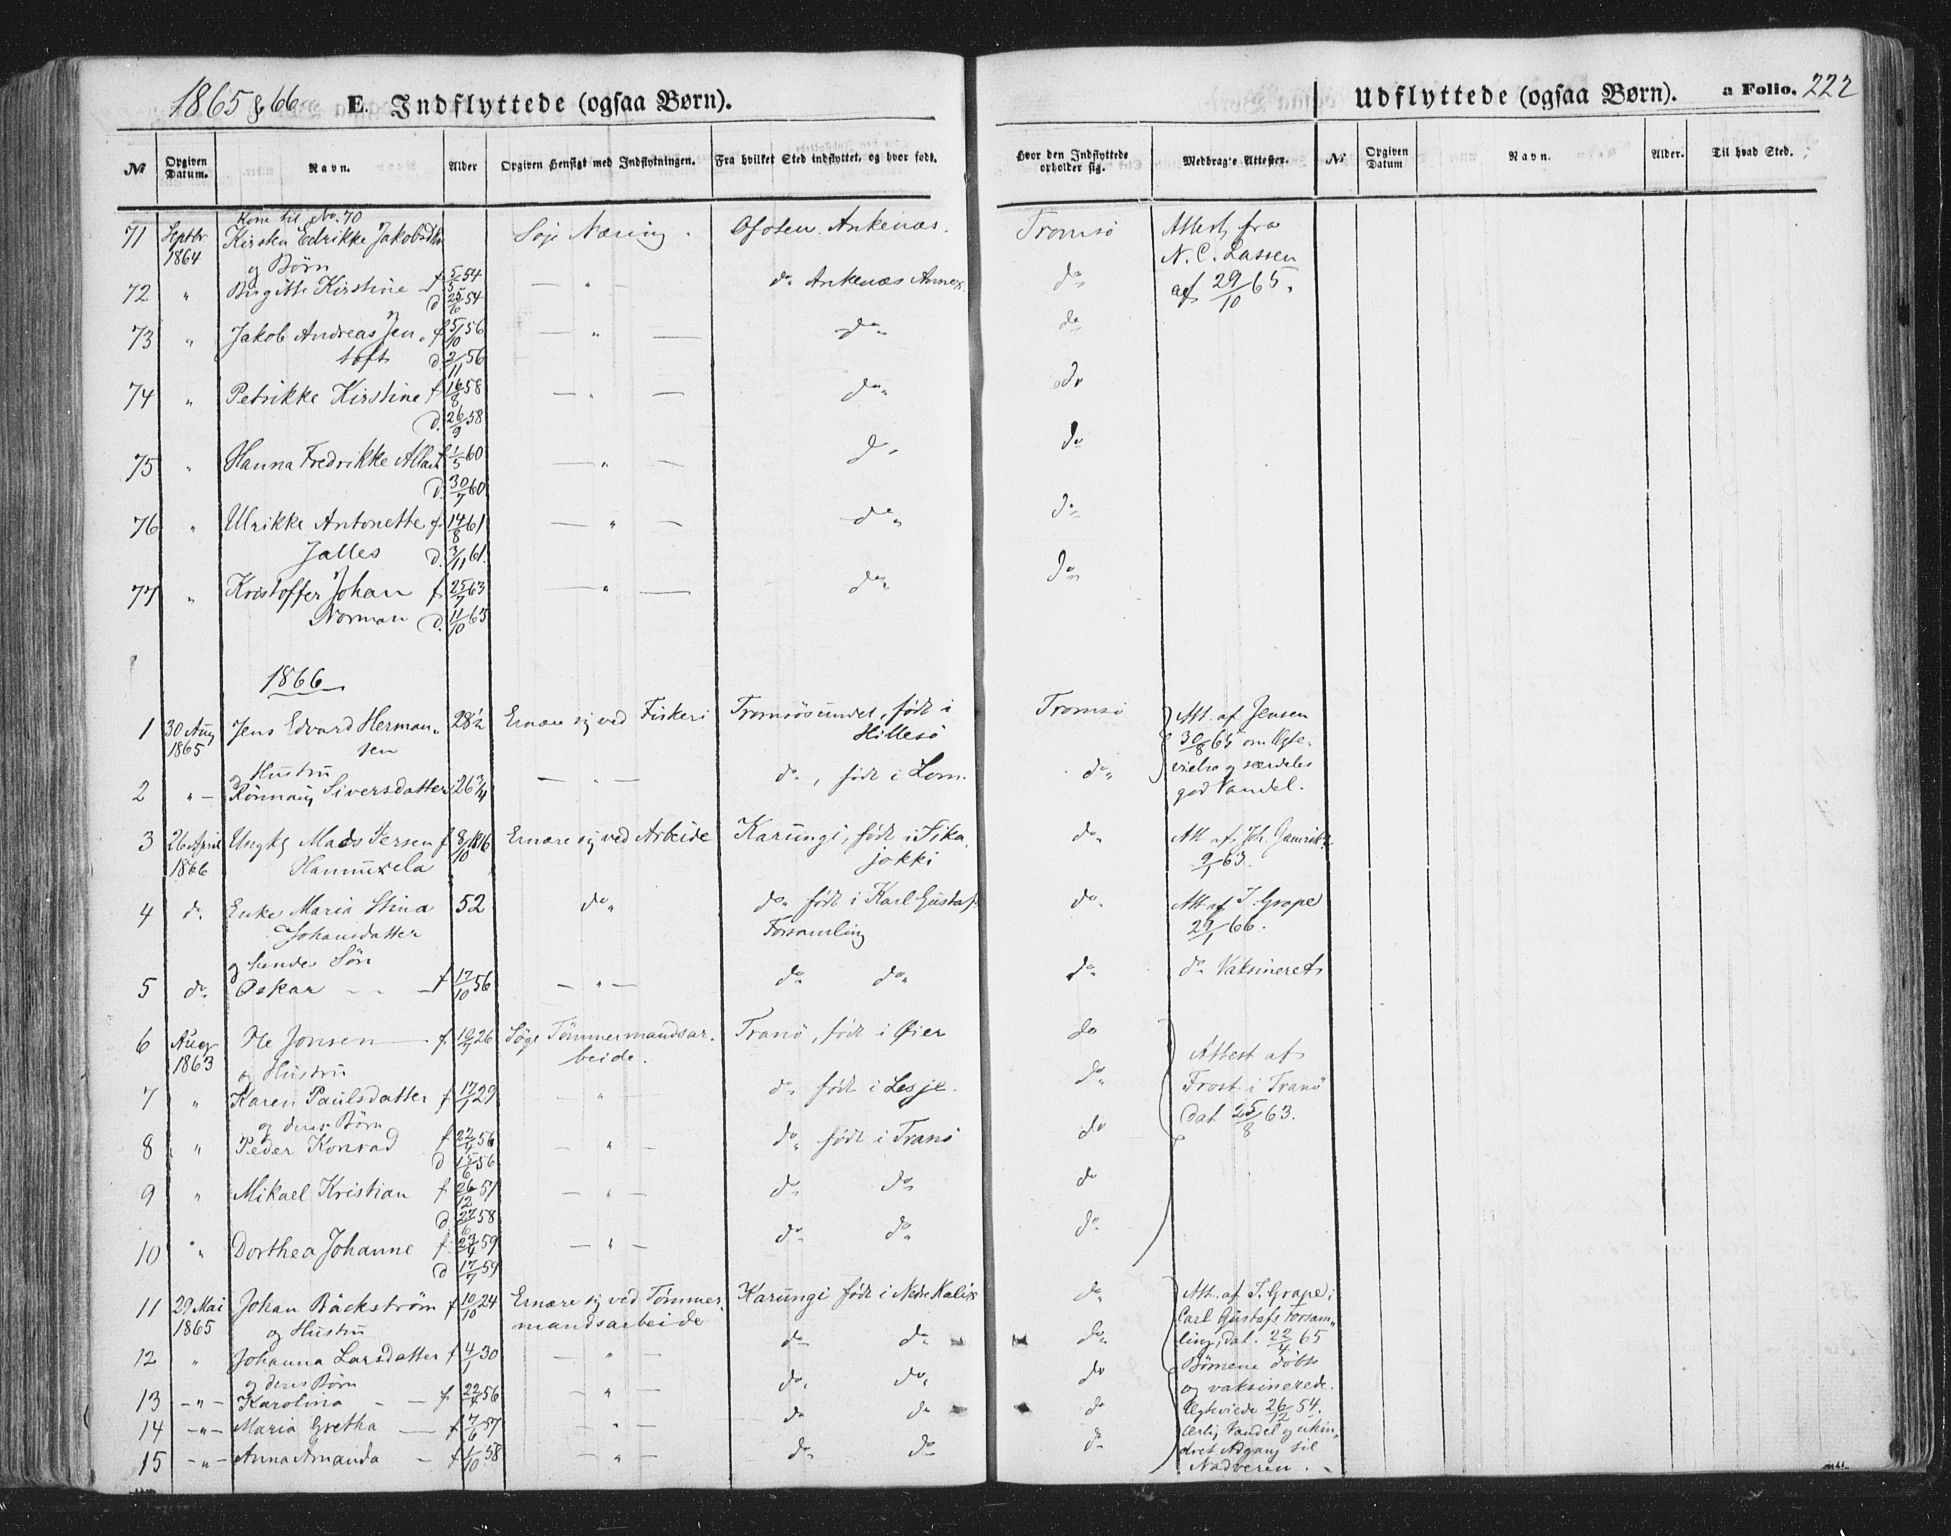 1865 & 66 E. Indflyttede (ogsaa Børn). Udflyttede (ogsaa Børn). a Folio. 222
№ Opgiven Datum. Navn. Alder Opgiven Hensigt med Indflytningen. Fra hvilket Sted indflyttet, og hvor født. Hvor den Indflyttede opholder sig. Medbragte Attester. № Opgiven Datum Navn. Alder. Til hvad Sted.
Kone til No. 70
71 Septbr 1864 Kirsten Edrikke Jakobsdtr Søge Næring. Ofoten. Ankenæs. Tromsø Attest fra
og Børn N. C. Lassen
72 " Birgitte Kirstine f 5/5 54 — " — do Ankenæs Annex. do af 29/10 65.
d 25/6 54
73 " Jakob Andreas Jen- f 5/10 56 — " — do do
toft d 2/11 56
74 " Petrikke Kirstine f 16/8 58 — " — do do
d. 26/9 58
75 " Hanna Fredrikke f 1/5 60 — " — do do
d. 30/7 60
76 " Ulrikke Antonette f. 14/8 61 — " — do do
Jalles d. 3/11 61.
77 " Kristoffer Johan f. 25/7 63 — " — do do
Norman d. 11/10 63
1866
1 30 Aug 1865 Jens Edvard Herman- 28½ Ernære sig ved Fiskeri Tromsøsundet, født i Tromsø Att. af Jensen
sen Hillesø 30/8 65 om Ægte-
og Hustru vielse og særdeles
2 " — Rönnaug Siversdatter 26¾ — " — do, født i Lom. do god Vandel.
3 26 April 1866 Ungkl Mads Persen f 8/10 1816 Ernære sig ved Arbeide Karungi, født i Sika- do Att. af Joh.
Hannuxela jokki 9/1 63.
4 do Enke Maria Stina 52 do do født i Karl Gustaf do Att af I. Grape
Johansdatter Forsamling 66.
og hendes Søn
5 do Oskar — f 17/10 56 — " — do do do do Vaksineret
6 Aug 1863 Ole Jonsen — f. 26 Søge Tømmermandsar- Tranø, født i Øier do Attest af
og Hustru beide.
7 " Karen Paulsdatter f 17/1 29 — " — do født i Lesje. do Frost i Tranø
og deres Børn dat 25/8 63.
8 " Peder Konrad f 22/4 56 — " — do født i Tranø do
d 15/6 56
9 " Mikael Kristian f 26/12 57 — " — do do do
d 27/6 58
10 " Dorthea Johanne f. 23/4 59 — " — do do do
d 17/7 59
11 29 Mai 1865 Johan Bäckström f 10/10 24 Ernære sig ved Tømmer- Karungi født i Nedre Kalix do Att. af I. Grape i
og Hustru mandsarbeide Carl Gustafs Forsam-
12 " Johanna Larsdatter f 4/1 30 — " — do do do ling, dat. 22/4 65
og deres Børn Børnene døbte
13 — " — Karolina — f. 22/4 56 — " — do do do og vaksinerede.
14 — " — Maria Gretha — f 7/6 57 — " — do do do Ægteviede 26/12 54.
15 — " — Anna Amanda — f 1/10 58 — " — do do do Ærlig Vandel og uhin-
dret Adgang til
Nadveren.